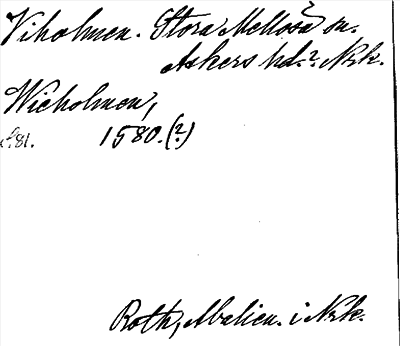 Viholmen. Stora Mellösa? sn.
Askers hd.? Nrk.
Wieholmen,
s. 81. 1580.(?)
Roth, Malien. i Nrk.